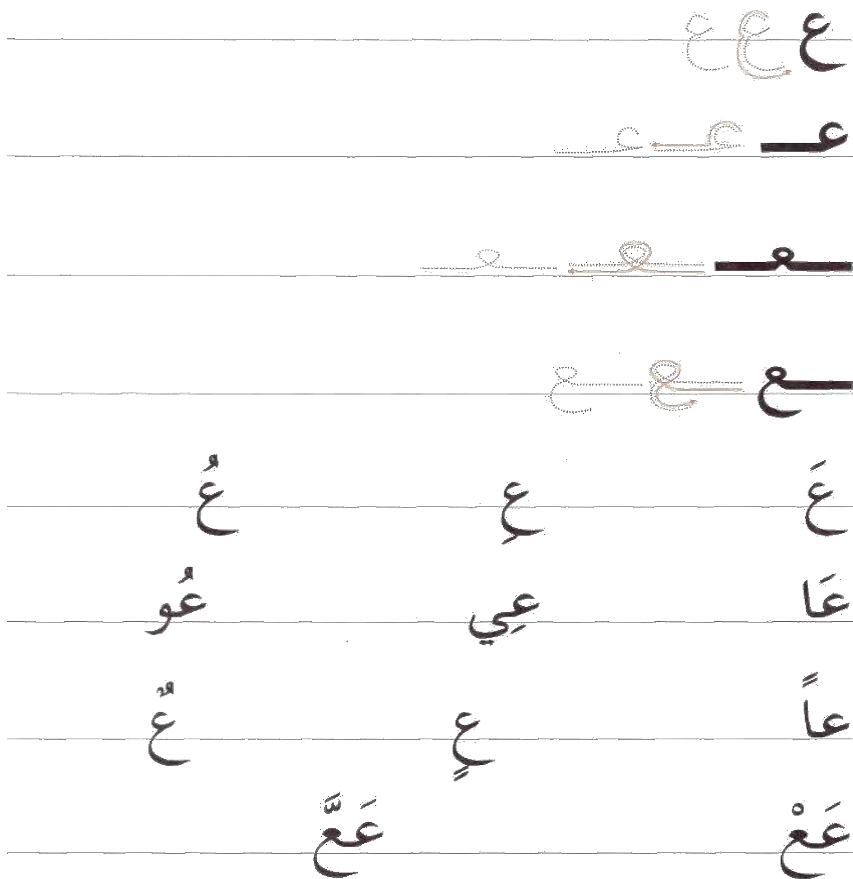 ع ع ع
عـ عـ عـ
ـعـ ـعـ ـعـ
ـع ـع ـع
عَ عِ عُ
عَا عِي عُو
عاً عٍ عٌ
عَعْ عَعَّ